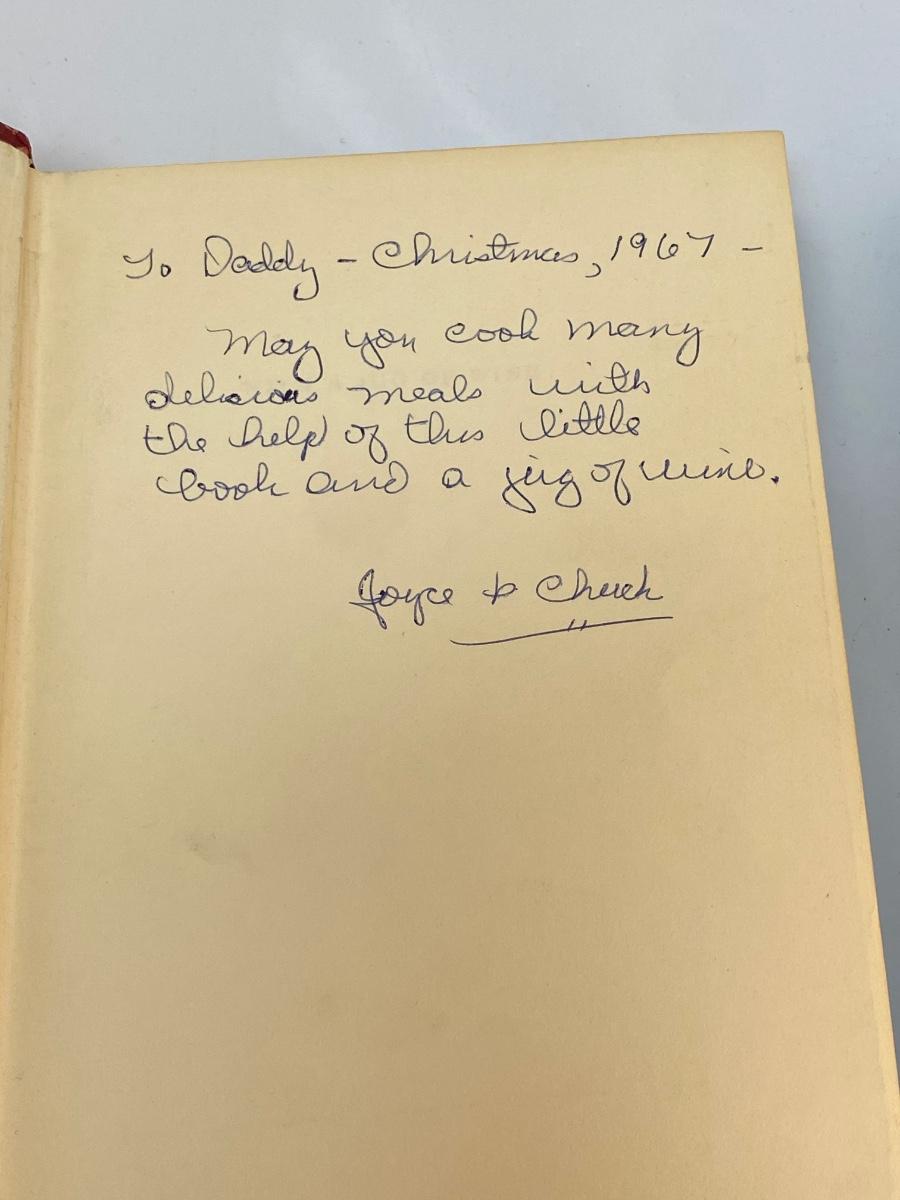 To Daddy - Christmas, 1967 -
May you cook many
delicious meals with
the help of this little
book and a jug of wine.
Joyce & Chuck